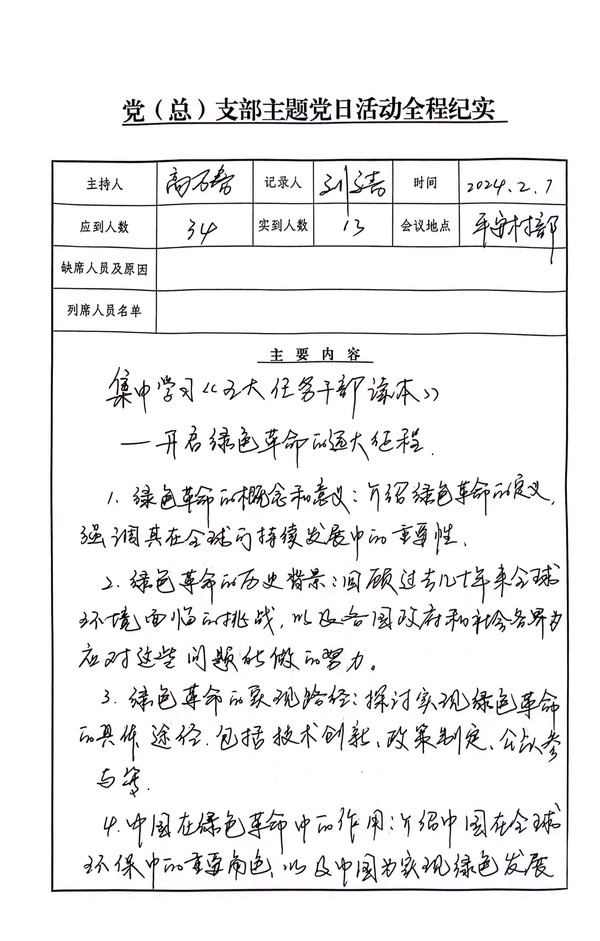 党（总）支部主题党日活动全程纪实
主持人 高 记录人 刘 时间 2024.2.7
应到人数 34 实到人数 13 会议地点 平安村部
缺席人员及原因
列席人员名单
主 要 内 容
集中学习《五大任务干部读本》
——开启绿色革命的远大征程.
1. 绿色革命的概念和意义：介绍绿色革命的定义，
强调其在全球可持续发展中的重要性.
2. 绿色革命的历史背景：回顾过去几十年来全球
环境面临的挑战，以及各国政府和社会各界为
应对这些问题所做的努力。
3. 绿色革命的实现路径：探讨实现绿色革命
的具体途径.包括技术创新、政策制定、公众参
与等.
4.中国在绿色革命中的作用：介绍中国在全球
环保中的重要角色.以及中国为实现绿色发展